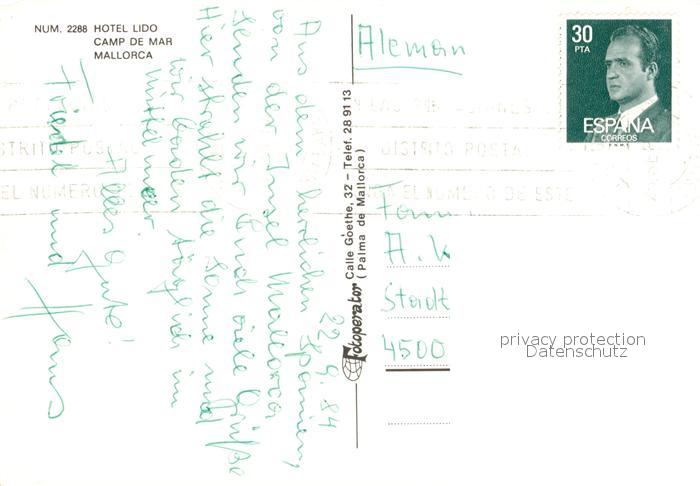 NUM. 2288 HOTEL LIDO
CAMP DE MAR
MALLORCA
22.9.84
Aus dem herrlichen Spanien,
von der Insel Mallorca
senden wir Euch viele Grüße
Hier strahlt die Sonne und
wir baden täglich im
Mittelmeer
Alles Gute!
Friedel und Hans
Fotoperator Calle Góethe, 32 – Telef. 28 91 13
(Palma de Mallorca)
Aleman
30
PTA
ESPAÑA
CORREOS
F.N.M.T.
DISTRITO POSTAL
EL NUMERO DE ESTE
Fam
A. K
Stadt
4500
privacy protection
Datenschutz